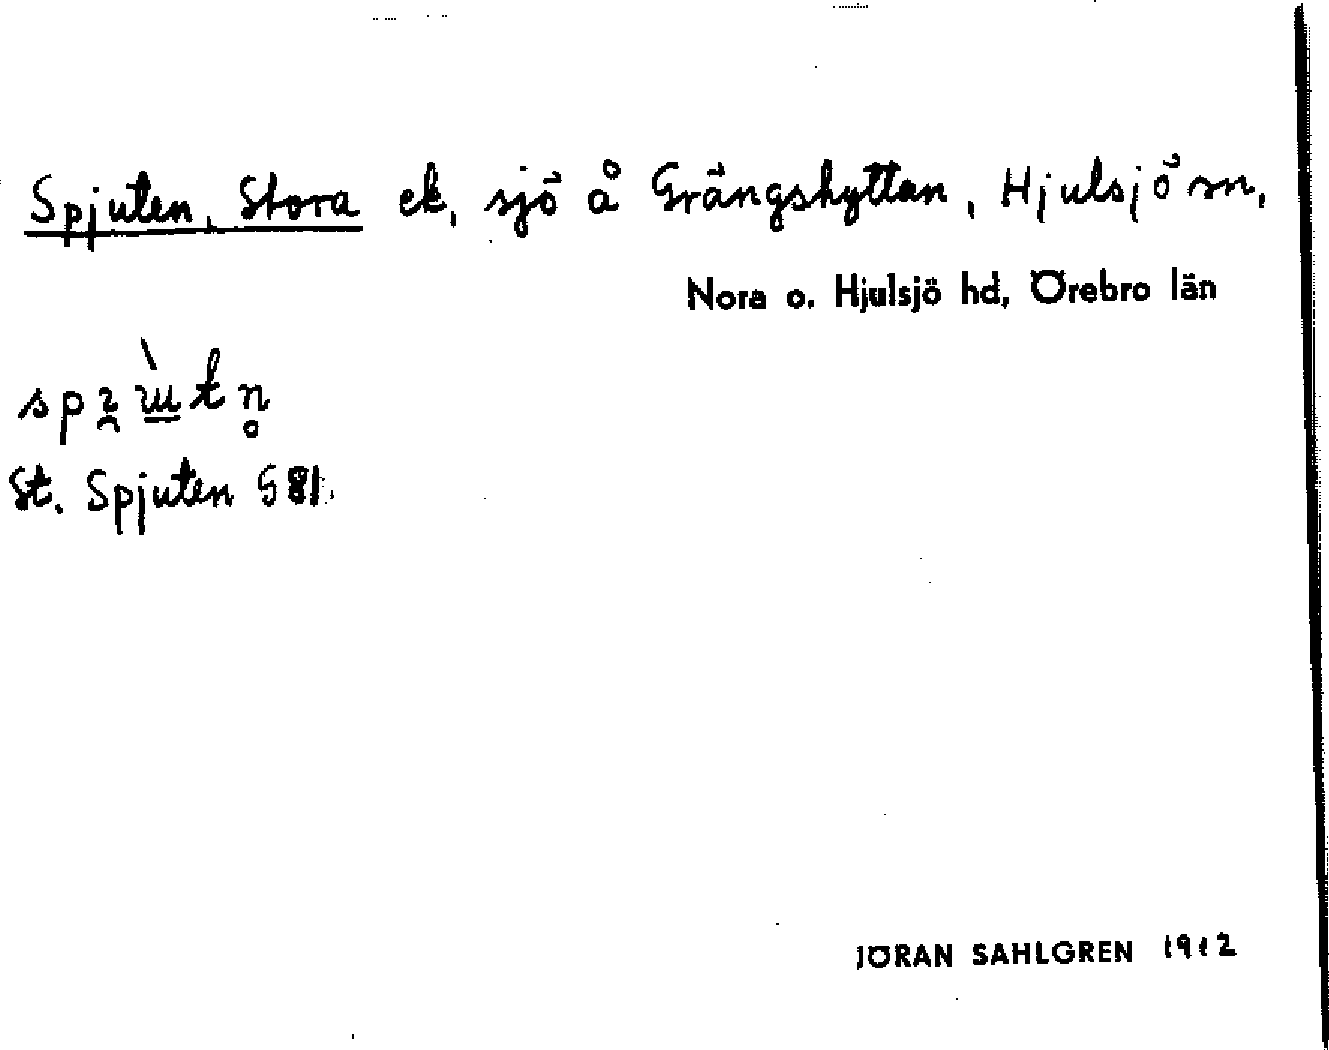 Spjuten, Stora ek, sjö å Grängshyttan, Hjulsjö sn,
Nora o. Hjulsjö hd, Örebro län
St. Spjuten G 81
JÖRAN SAHLGREN 1912